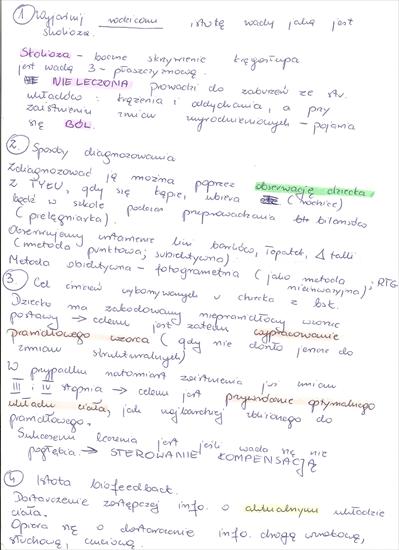 1) Wyjaśnij rodzicom istotę wady jaką jest
skolioza.
Skolioza - boczne skrzywienie kręgosłupa
jest wadą 3-płaszczyznową.
NIELECZONA prowadzi do zaburzeń ze str.
układów: krążenia i oddychania, a przy
zaistnieniu zmian zwyrodnieniowych - pojawia
się BÓL.
2. Sposoby diagnozowania
Zdiagnozować ją można poprzez obserwację dziecka
z TYŁU, gdy się kąpie, ubiera (rodzice)
bądź w szkole podczas przeprowadzania bilansów
(pielęgniarka).
Obserwujemy ustawienie linii barków, łopatek, Δ talii
(metoda punktowa; subiektywna)
Metoda obiektywna - fotogrametria (jako metoda nieinwazyjna); RTG
3. Cel ćwiczeń wykonywanych u dziecka z bsk.
Dziecko ma zakodowany nieprawidłowy wzorzec
postawy → celem jest zatem wypracowanie
prawidłowego wzorca (gdy nie doszło jeszcze do
zmian strukturalnych)
W przypadku natomiast zaistnienia już zmian
III i IV stopnia → celem jest przywrócenie optymalnego
układu ciała, jak najbardziej zbliżonego do
prawidłowego.
Sukcesem leczenia jest jeśli wada się nie
pogłębia. → STEROWANIE KOMPENSACJĄ
4. Istota biofeedback.
Dostarczenie zastępczej info. o aktualnym układzie
ciała.
Opiera się o dostarczanie info. drogą wzrokową,
słuchową, czuciową.